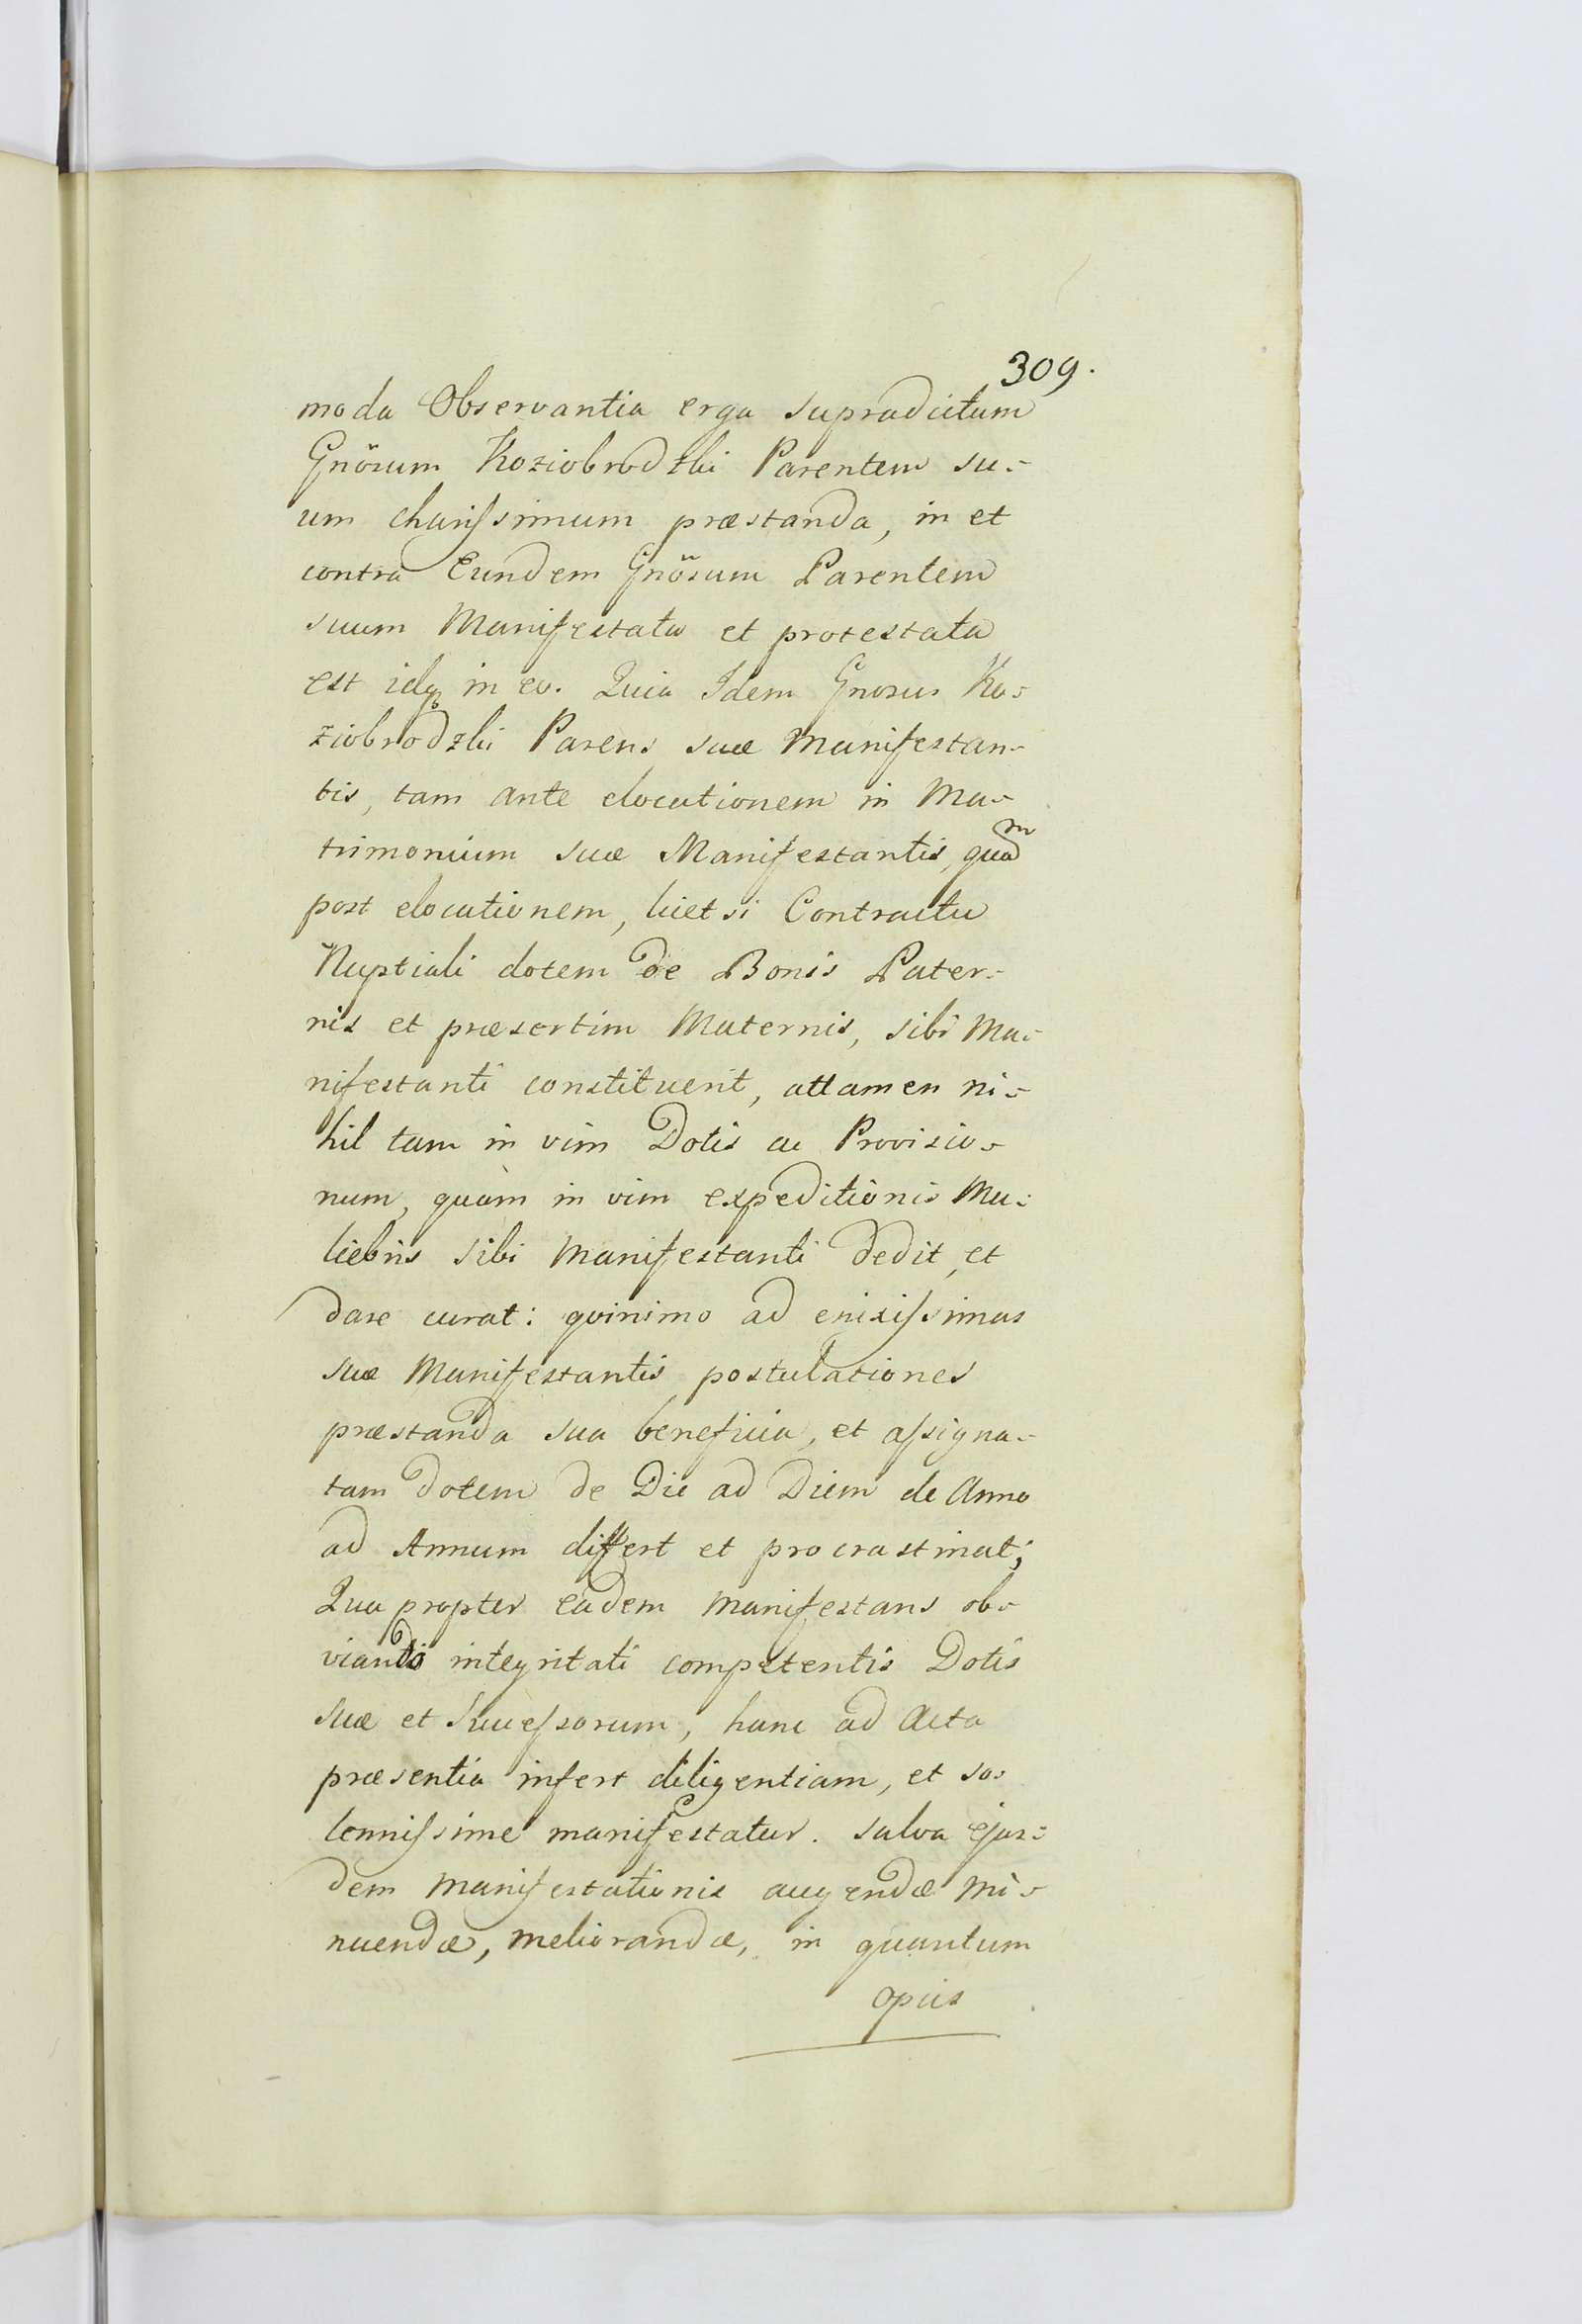 309.
moda Observantia erga supradictum
Gnösum Koziobrodzki Parentem su-
um charissimum præstanda, in et
contra Eundem Gnösum Parentem
suum Manifestata et protestata
est idq in eo. Quia Idem Gnosus Ko-
ziobrodzki Parens suæ Manifestan-
tis, tam ante elocationem in Ma-
trimonium suæ Manifestantis, quam
post elocationem, licet si Contractu
Nuptiali dotem de Bonis Pater-
nis et præsertim Maternis, sibi Ma-
nifestanti constituerit, attamen ni-
hil tam in vim Dotis ac Provisio-
num, quàm in vim expeditionis Mu-
liebris sibi Manifestanti dedit, et
dare curat: quinimo ad enixissimas
suæ Manifestantis postulationes
præstanda sua beneficia, et assigna-
tam dotem de Die ad Diem de Anno
ad Annum differt et procrastinat;
Qua propter eadem Manifestans ob-
viando integritati competentis Dotis
suæ et Successorum, hanc ad Acta
præsentia infert diligentiam, et so-
lennissime manifestatur. salva ejus-
dem Manifestationis augendæ mi-
nuendæ, meliorandæ, in quantum
opus